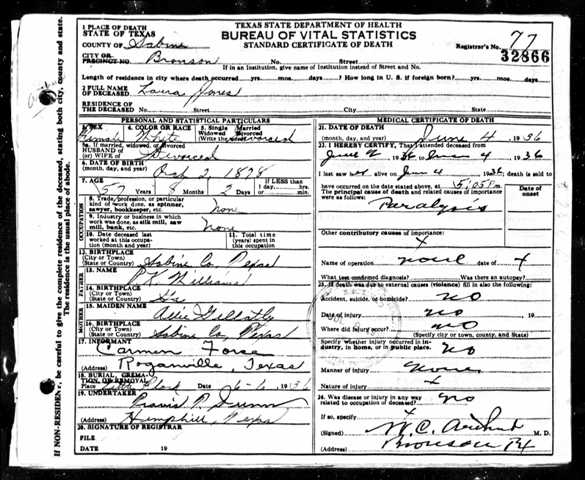 TEXAS STATE DEPARTMENT OF HEALTH
BUREAU OF VITAL STATISTICS
STANDARD CERTIFICATE OF DEATH
1 PLACE OF DEATH
STATE OF TEXAS
COUNTY OF Sabine
CITY OR PRECINCT NO. Bronson
No. Street
Registrar's No. 77
32866
If in an institution, give Name of Institution instead of Street and No.
Length of residence in city where death occurred yrs. mos. days? How long in U. S. if foreign born? yrs. mos. days.
2 FULL NAME OF DECEASED Laura Jones
RESIDENCE OF THE DECEASED No. Street City State
PERSONAL AND STATISTICAL PARTICULARS
3. SEX Female
4. COLOR OR RACE White
5. Single Married Widowed Divorced Divorced
5a. If married, widowed, or divorced HUSBAND OF (or) WIFE OF Divorced
6. DATE OF BIRTH (month, day, and year) Oct 2, 1878
7. AGE 57 Years 8 Months 2 Days If LESS than 1 day, hrs. min.
8. Trade, profession, or particular kind of work done, as spinner, sawyer, bookkeeper, etc. Non
9. Industry or business in which work was done, as silk mill, saw mill, bank, etc. None
10. Date deceased last worked at this occupation (month and year)
11. Total time (years) spent in this occupation
12. BIRTHPLACE (City or Town) (State or Country) Sabine Co, Texas
13. NAME Williams
14. BIRTHPLACE (City or Town) (State or Country)
15. MAIDEN NAME
16. BIRTHPLACE (City or Town) (State or Country) Sabine Co, Texas
17 INFORMANT Carmen
(Address) Roganville, Texas
18. BURIAL, CREMATION, OR REMOVAL
Place Date 6-6 1936
19. UNDERTAKER
(Address) Hemphill, Texas
20. SIGNATURE OF REGISTRAR
FILE DATE 19
MEDICAL CERTIFICATE OF DEATH
21. DATE OF DEATH (month, day, and year) June 4 1936
22. I HEREBY CERTIFY, That I attended deceased from
June 1936 June 4 1936
I last saw alive on June 4 1936, death is said to
have occurred on the date stated above, at 5:05 Pm
The principal cause of death and related causes of importance were as follows: Date of onset
Paralysis
Other contributory causes of importance: x
Name of operation none date of x
What test confirmed diagnosis? Was there an autopsy?
23. If death was due to external causes (violence) fill in also the following:
Accident, suicide, or homicide? no
Date of injury no 19
Where did injury occur? no
(Specify city or town, county, and State)
Specify whether injury occurred in industry, in home, or in public place. no
Manner of injury None
Nature of injury x
24. Was disease or injury in any way related to occupation of deceased? no
If so, specify x
(Signed) W. C. M. D.
(Address) Bronson